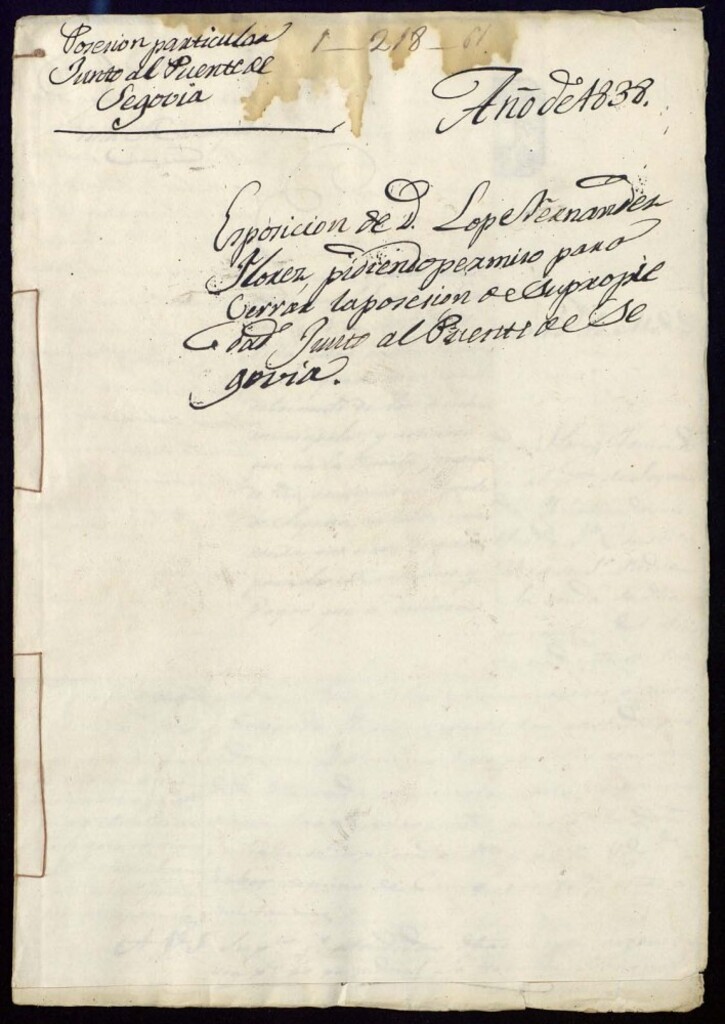 Posesion particular
Junto al Puente de
Segovia
1 - 218 - 61
Año de 1838.
Esposicion de D. Lope Fernandez
Florez, pidiendo permiso para
Cerrar la posesion de su propie
dad Junto al Puente de Se
govia.